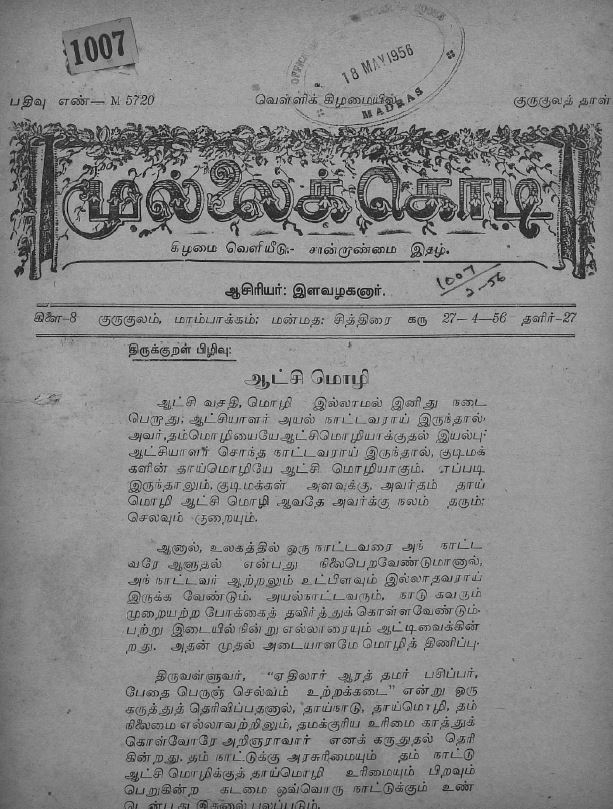 1007
18 MAY 1956
MADRAS
பதிவு எண்— M 5720 வெள்ளிக் கிழமையில் குருகுலத் தாள்
முல்லைக்கொடி
கிழமை வெளியீடு:- சான்றாண்மை இதழ்.
1007
ஆசிரியர்: இளவழகனார்.
கிளை-8 குருகுலம், மாம்பாக்கம்: மன்மத: சித்திரை கரு 27-4-56 தளிர்-27
திருக்குறள் பிழிவு:
ஆட்சி மொழி
ஆட்சி வசதி, மொழி இல்லாமல் இனிது நடை
பெறுது; ஆட்சியாளர் அயல் நாட்டவராய் இருந்தால்
அவர், தம்மொழியையேஆட்சிமொழியாக்குதல் இயல்பு;
ஆட்சியாளர் சொந்த நாட்டவராய் இருந்தால், குடிமக்
களின் தாய்மொழியே ஆட்சி மொழியாகும். எப்படி
இருந்தாலும், குடிமக்கள் அளவுக்கு, அவர்தம் தாய்
மொழி ஆட்சி மொழி ஆவதே அவர்க்கு நலம் தரும்;
செலவும் குறையும்.
ஆனால், உலகத்தில் ஒரு நாட்டவரை அந் நாட்ட
வரே ஆளுதல் என்பது நிலைபெறவேண்டுமானால்,
அந் நாட்டவர் ஆற்றலும் உட்பிளவும் இல்லாதவராய்
இருக்க வேண்டும். அயல்நாட்டவரும், நாடு கவரும்
முறையற்ற போக்கைத் தவிர்த்துக்கொள்ளவேண்டும்.
பற்று இடையில்நின்று எல்லாரையும் ஆட்டிவைக்கின்
றது. அதன் முதல் அடையாளமே மொழித் திணிப்பு.
திருவள்ளுவர், "ஏதிலார் ஆரத் தமர் பசிப்பர்,
பேதை பெருஞ் செல்வம் உற்றக்கடை" என்று ஒரு
கருத்துத் தெரிவிப்பதனால், தாய்நாடு, தாய்மொழி, தம்
நிலைமை எல்லாவற்றிலும், தமக்குரிய உரிமை காத்துக்
கொள்வோரே அறிஞராவார் எனக் கருதுதல் தெரி
கின்றது. தம் நாட்டுக்கு அரசுரிமையும் தம் நாட்டு
ஆட்சி மொழிக்குத் தாய்மொழி உரிமையும் பிறவும்
பெறுகின்ற கடமை ஒவ்வொரு நாட்டுக்கும் உண்
டென்பது இதனால் புலப்படும்.